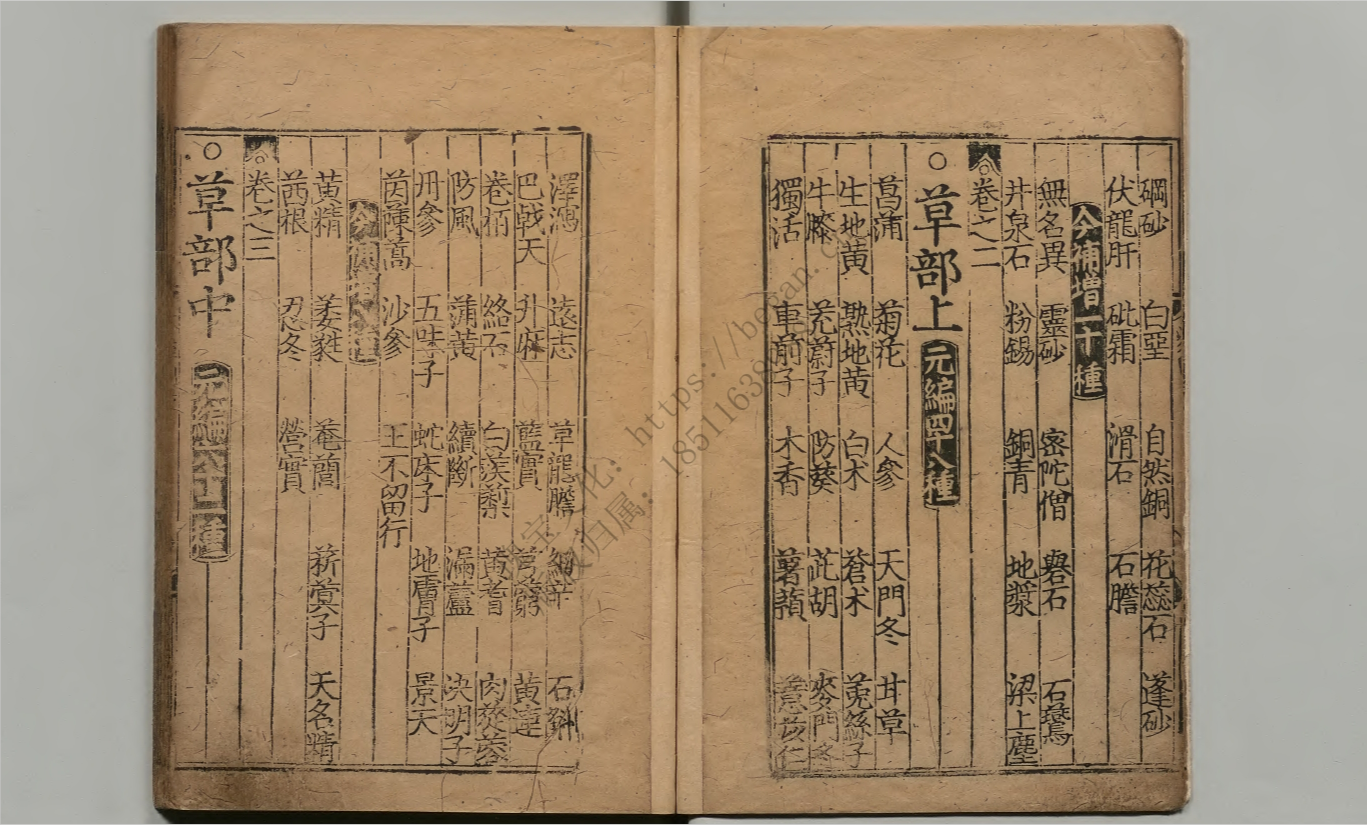 硇砂 白堊 自然銅 花蕊石 蓬砂
伏龍肝 砒霜 滑石 石膽
今補增一十種
無名異 靈砂 密陀僧 礜石 石鷰
井泉石 粉錫 銅青 地漿 梁上塵
卷之二
○草部上 元編四十八種
菖蒲 菊花 人參 天門冬 甘草
生地黃 熟地黃 白朮 蒼朮 菟絲子
牛膝 茺蔚子 防葵 茈胡 麥門冬
獨活 車前子 木香 薯蕷 薏苡仁
澤瀉 遠志 草龍膽 細辛 石斛
巴戟天 升麻 藍實 芎藭 黃連
卷栢 絡石 白蒺蔾 黃耆 肉蓯蓉
防風 蒲黃 續斷 漏蘆 决明子
丹參 五味子 蛇床子 地膚子 景天
茵蔯蒿 沙參 王不留行
今補增
黃精 萎蕤 菴䕡 菥蓂子 天名精
茜根 忍冬 營實
卷之三
○草部中 元編六十二種
https://began.
18511638